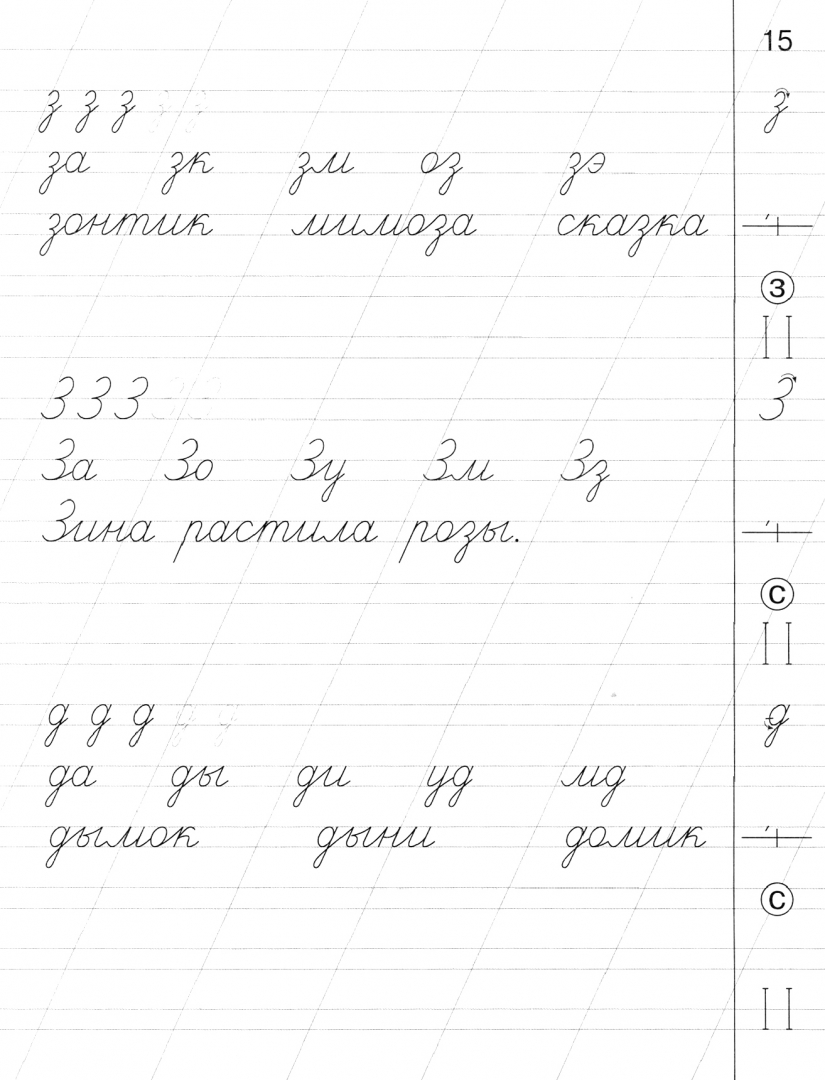 15
з з з з з з
за зк зм оз зэ
зонтик мимоза сказка
З
З З З З З З
За Зо Зу Зм Зз
Зина растила розы.
С
д д д д д д
да ды ди уд мд
дымок дыни домик
С